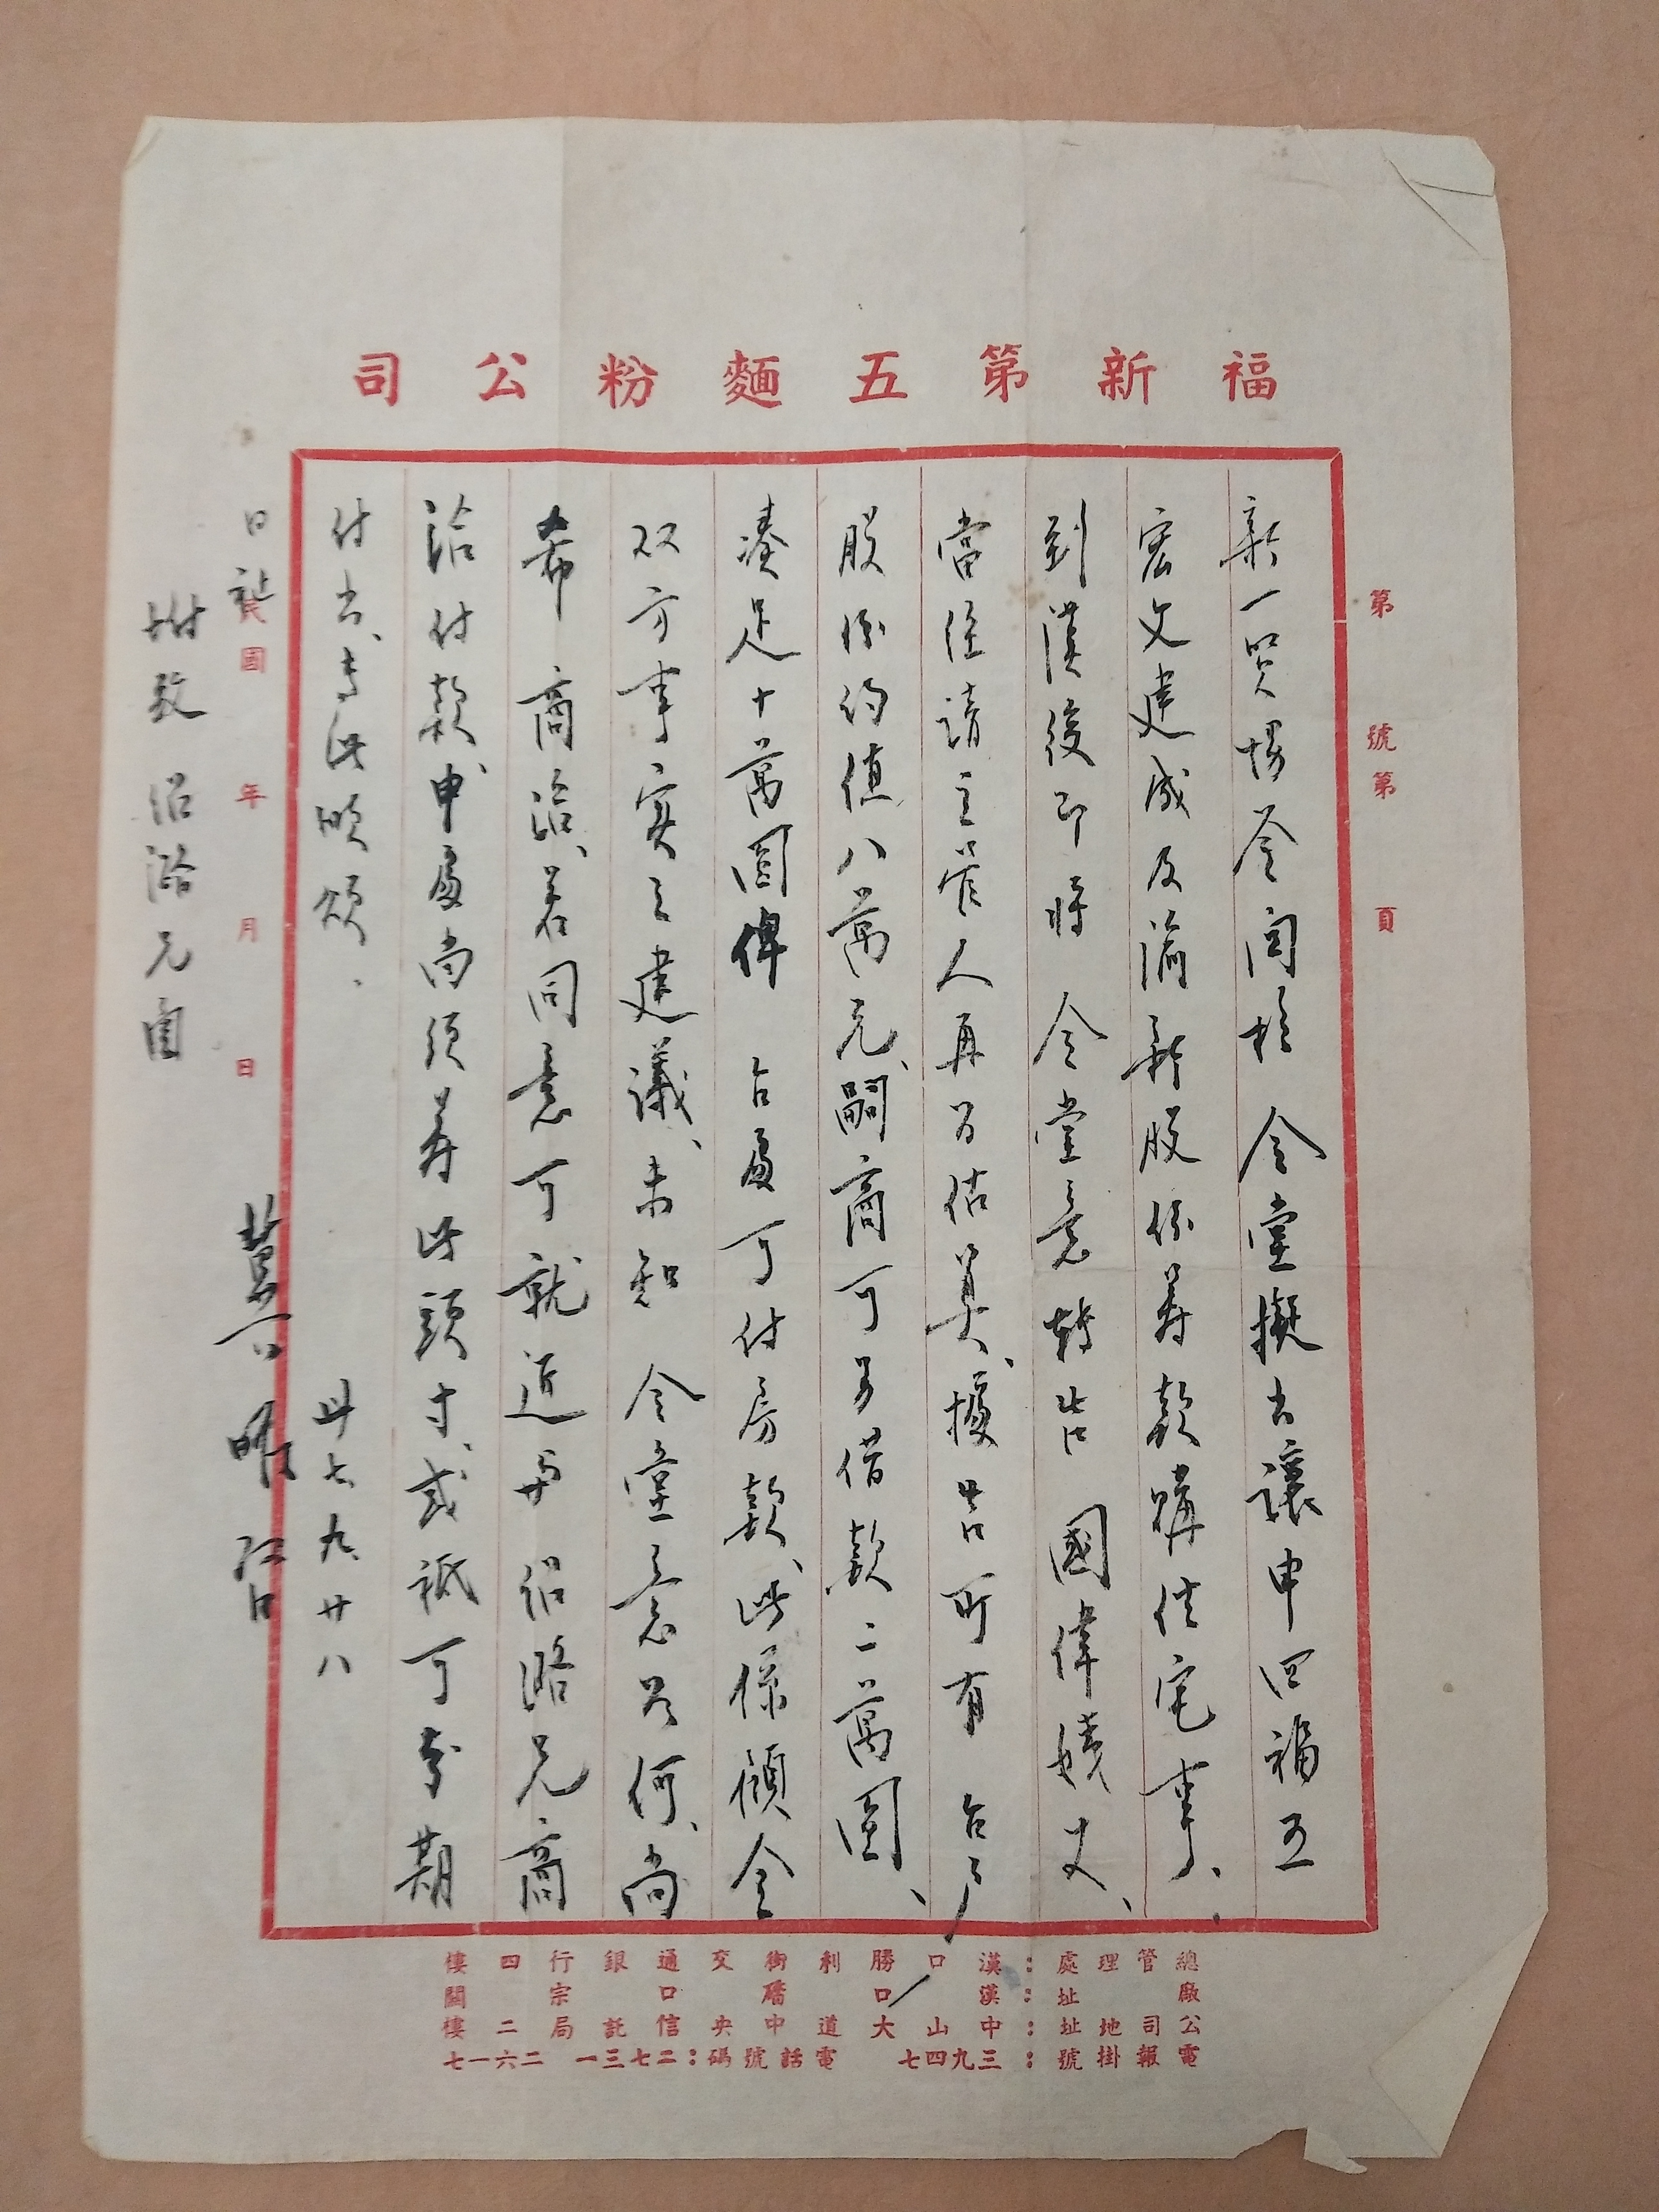 福新第五麵粉公司
第 號第 頁
新一賢場荃閏於 令堂擬出讓申四福五
宏文建成及渝新股份籌款購住宅事、
到漢後即將 令堂意轉告 國偉姨丈、
當經請主管人再為估算、據告所有 台戶
股份約值八萬元、嗣商可另借款二萬圓、
湊足十萬圓俾 台處可付房款、此係傾全
双方事實之建議、未知 令堂意為何、尚
希 商洽、若同意可就近與 治潞兄商
洽付款、申處尚須籌此頭寸、或祇可分期
付出、專此順頌、
日祉
卅七、九、廿八
附致 治潞兄函
民國 年 月 日
總管理處：漢口勝利街交通銀行四樓
廠址：漢口礄口宗關
公司地址：漢口中山大道中央信託局二樓
電報掛號：三九四七 電話號碼：二七三一 二六一七